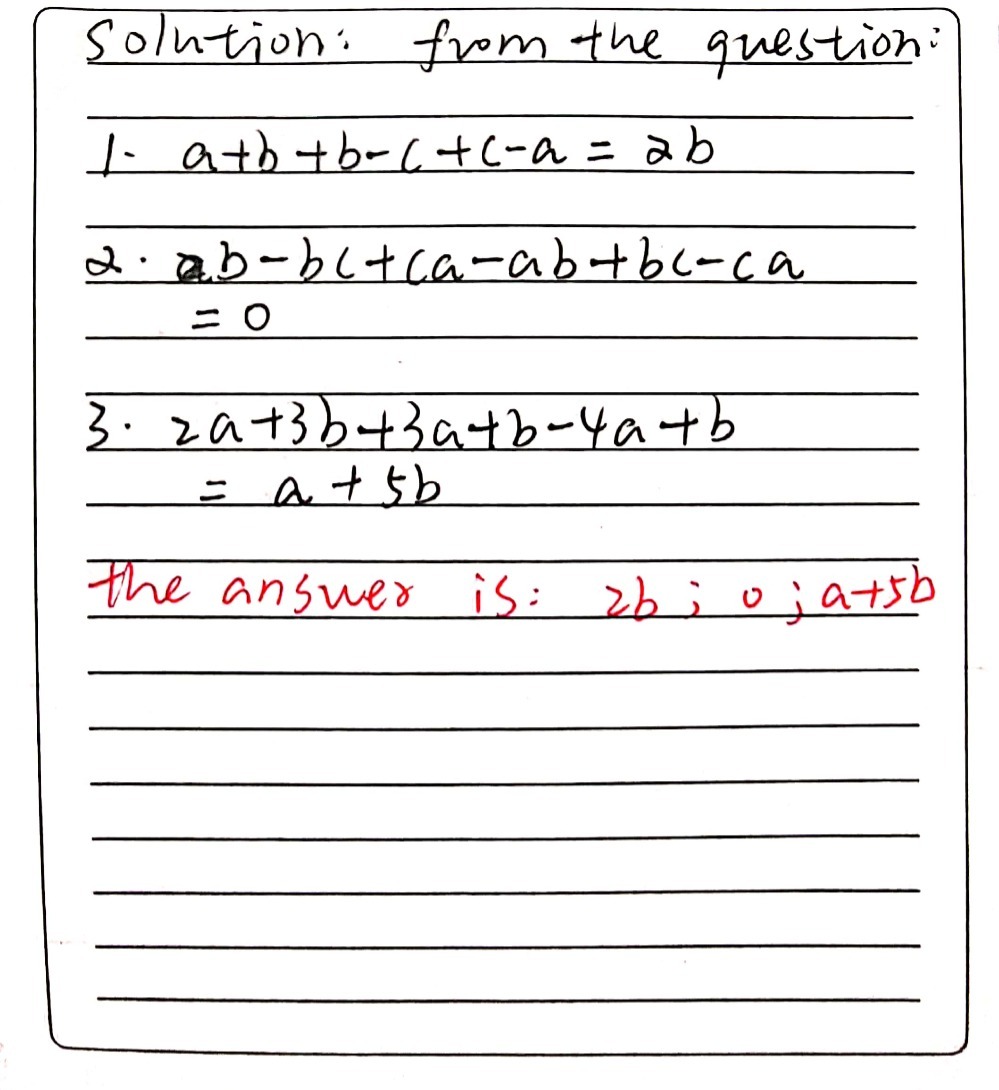 Solution: from the question:
1. a+b+b-c+c-a = 2b
2. ab-bc+ca-ab+bc-ca
= 0
3. 2a+3b+3a+b-4a+b
= a+5b
the answer is: 2b; 0; a+5b